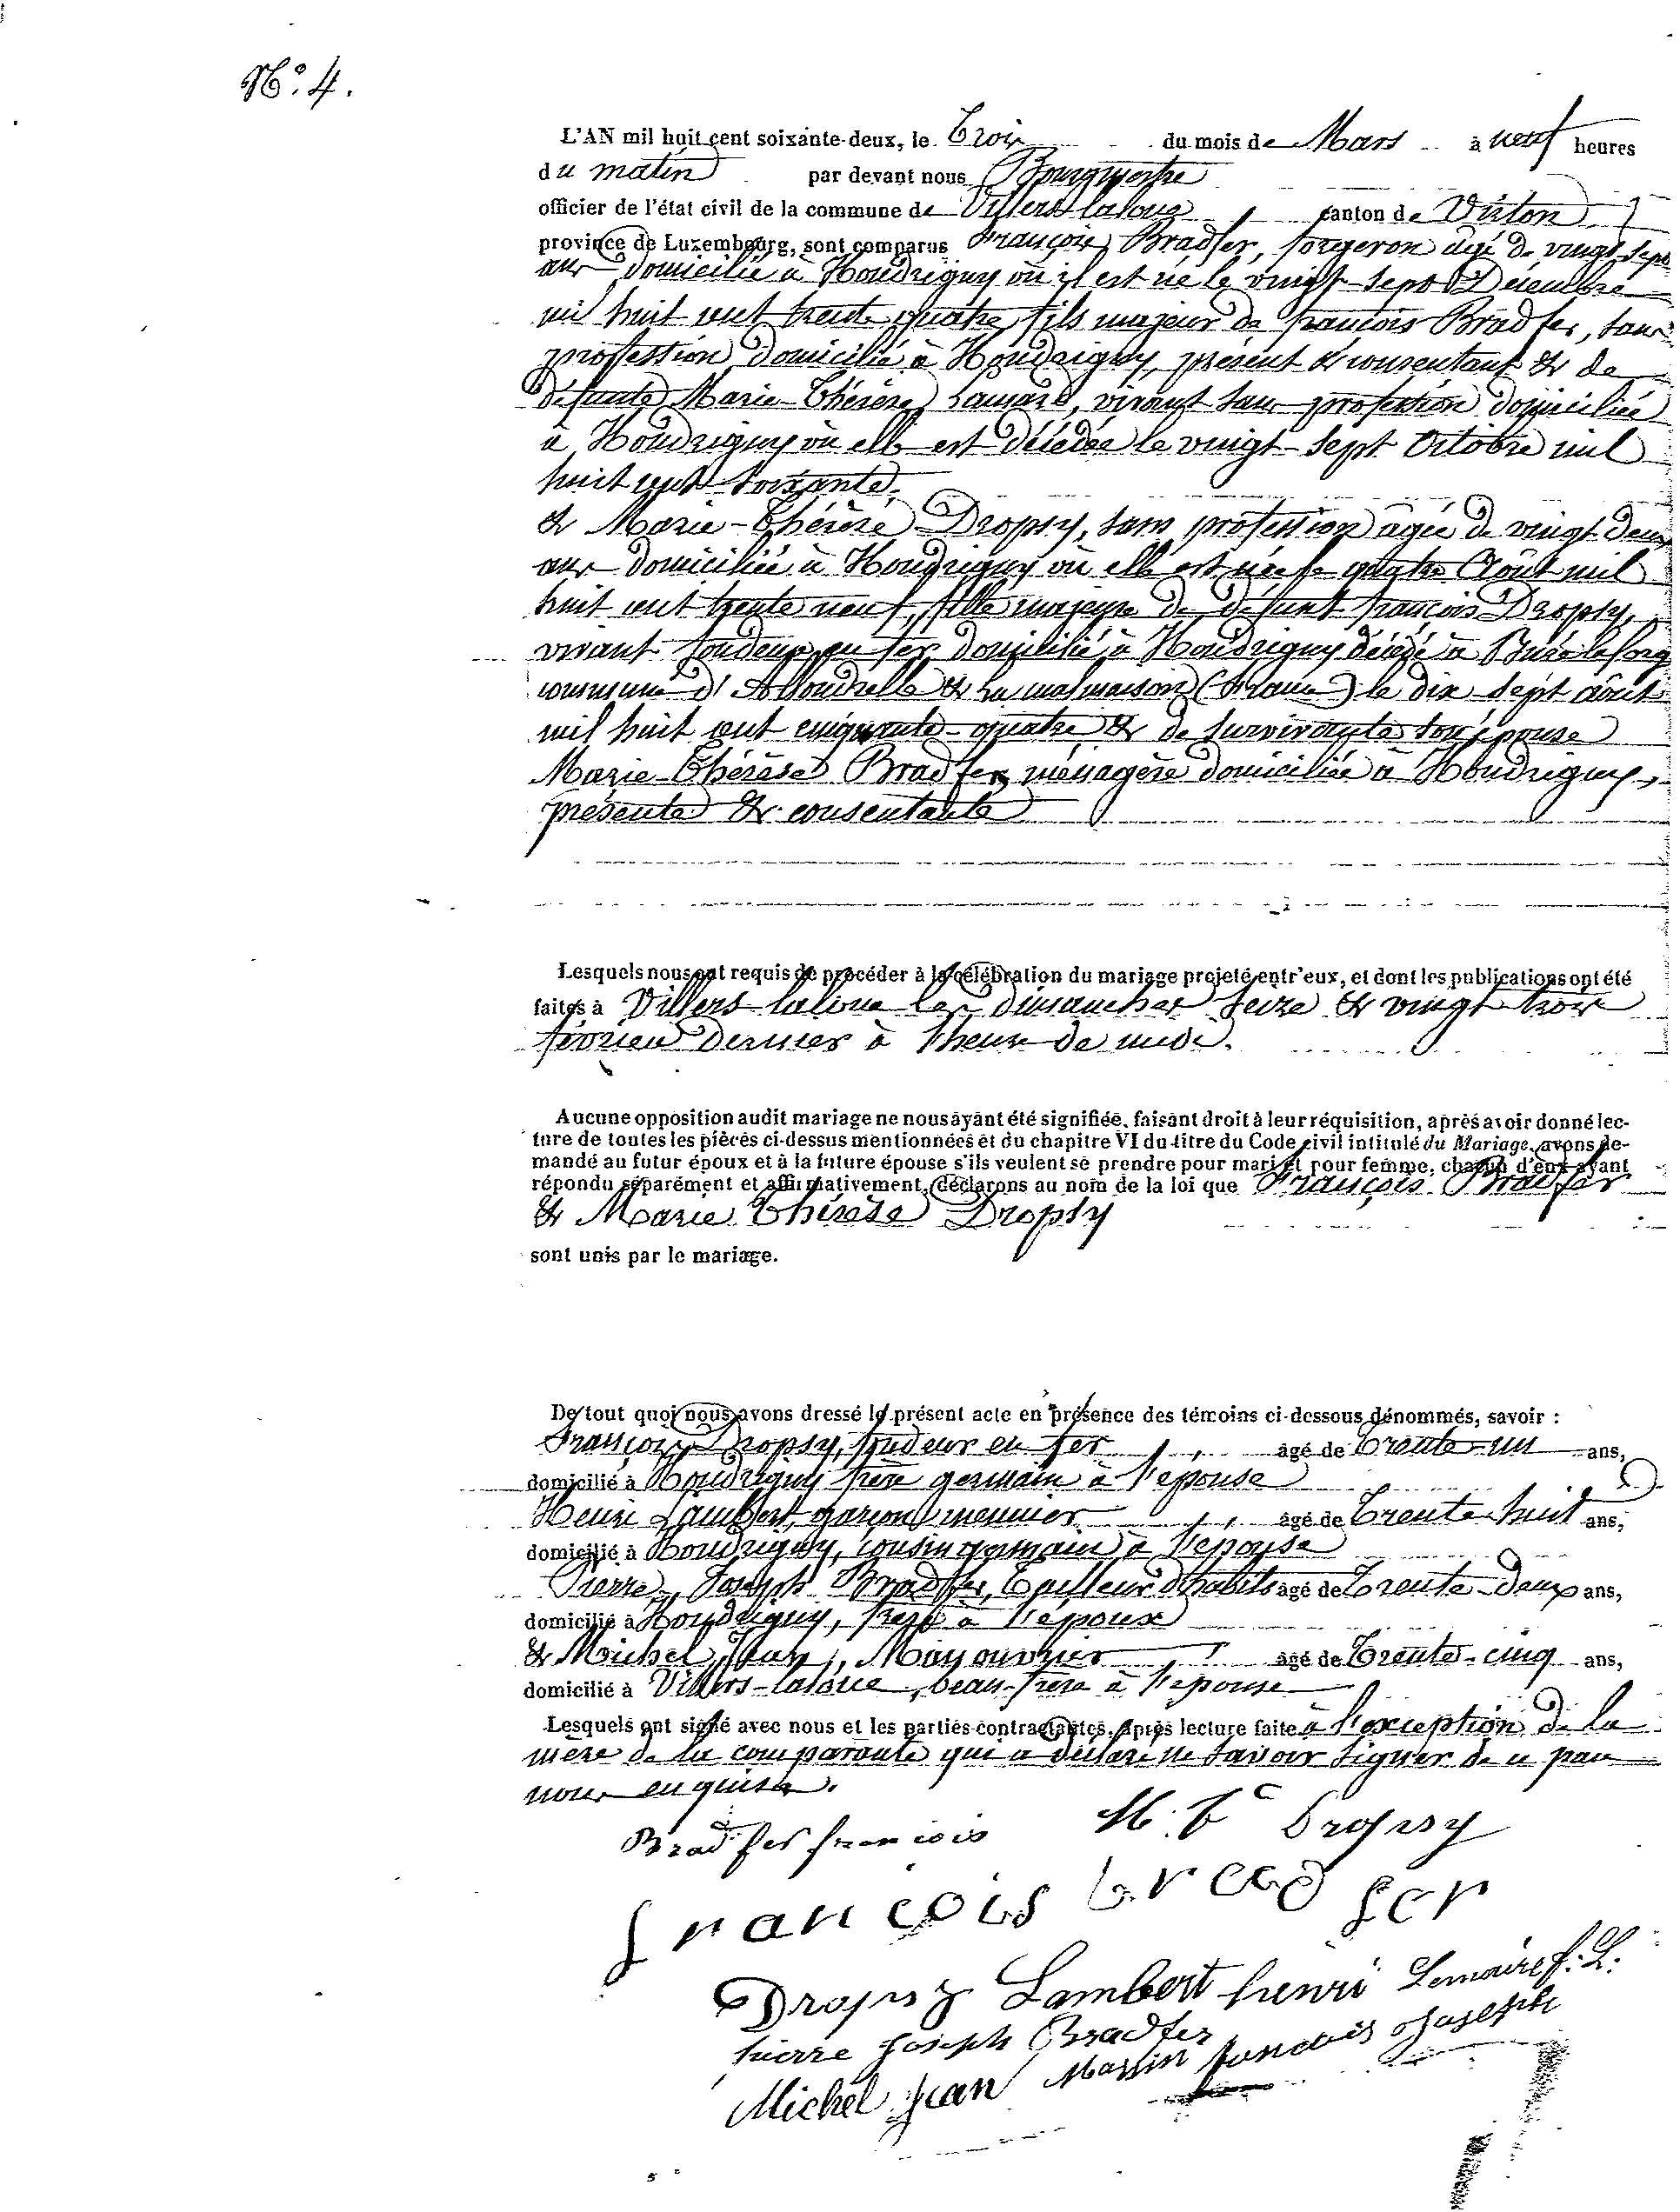 N° 4.
L'AN mil huit cent soixante-deux, le Trois du mois de Mars à neuf heures
du matin par devant nous Bourgmestre
officier de l'état civil de la commune de Villers-laloue canton de Virton
province de Luxembourg, sont comparus François Bradfer, forgeron agé de vingt-sept
ans domicilié à Houdrigny où il est né le vingt-sept Décembre
mil huit cent trente quatre, fils majeur de françois Bradfer, sans
profession domicilié à Houdrigny, présent & consentant & de
défunte Marie-Thérèse, vivant sans profession domiciliée
à Houdrigny où elle est décédée le vingt-sept Octobre mil
huit cent soixante.
& Marie-Thérèse Dropsy, sans profession agée de vingt-deux
ans domiciliée à Houdrigny où elle est née le quatre Août mil
huit cent trente neuf, fille majeure de défunt françois Dropsy,
vivant fondeur en fer domicilié à Houdrigny décédé à
commune d'Allondrelle & La malmaison (France) le dix-sept août
mil huit cent cinquante-quatre & de survivante son épouse
Marie-Thérèse Bradfer, ménagère domiciliée à Houdrigny,
présente & consentante
Lesquels nous ont requis de procéder à la célébration du mariage projeté entr'eux, et dont les publications ont été
faites à Villers-laloue les dimanches seize & vingt trois
février dernier à l'heure de midi.
Aucune opposition audit mariage ne nous ayant été signifiée, faisant droit à leur réquisition, après avoir donné lec-
ture de toutes les pièces ci-dessus mentionnées et du chapitre VI du titre du Code civil intitulé du Mariage, avons de-
mandé au futur époux et à la future épouse s'ils veulent se prendre pour mari et pour femme, chacun d'eux ayant
répondu séparément et affirmativement, déclarons au nom de la loi que François Bradfer
& Marie Thérèse Dropsy
sont unis par le mariage.
De tout quoi nous avons dressé le présent acte en présence des témoins ci-dessous dénommés, savoir :
François Dropsy, fondeur en fer âgé de Trente-un ans,
domicilié à Houdrigny frère germain à l'épouse
Henri Lambert, garçon meunier âgé de Trente-huit ans,
domicilié à Houdrigny, cousin germain à l'épouse
Pierre, Joseph Bradfer, Tailleur d'habits âgé de Trente-deux ans,
domicilié à Houdrigny, frère à l'époux
& Michel Jean, Manouvrier âgé de Trente-cinq ans,
domicilié à Villers-laloue, beau-frère à l'épouse
Lesquels ont signé avec nous et les parties contractantes, après lecture faite à l'exception de la
mère de la comparante qui a déclaré ne savoir signer de ce par
nous enquise.
Bradfer francois M. Te Dropsy
françois bradfer
Dropsy Lambert henri Lemaire f. L.
pierre Joseph Bradfer
Michel Jean Massin francois Joseph